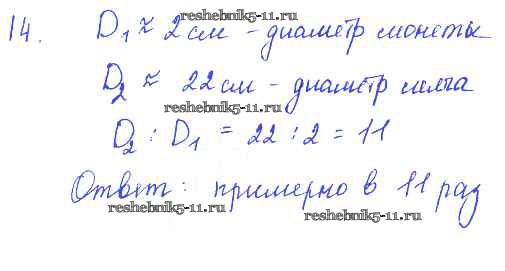 reshebnik5-11.ru
14. D₁ ≈ 2 см - диаметр монеты
D₂ ≈ 22 см - диаметр мяча
reshebnik5-11.ru
D₂ : D₁ = 22 : 2 = 11
Ответ: примерно в 11 раз
reshebnik5-11.ru reshebnik5-11.ru